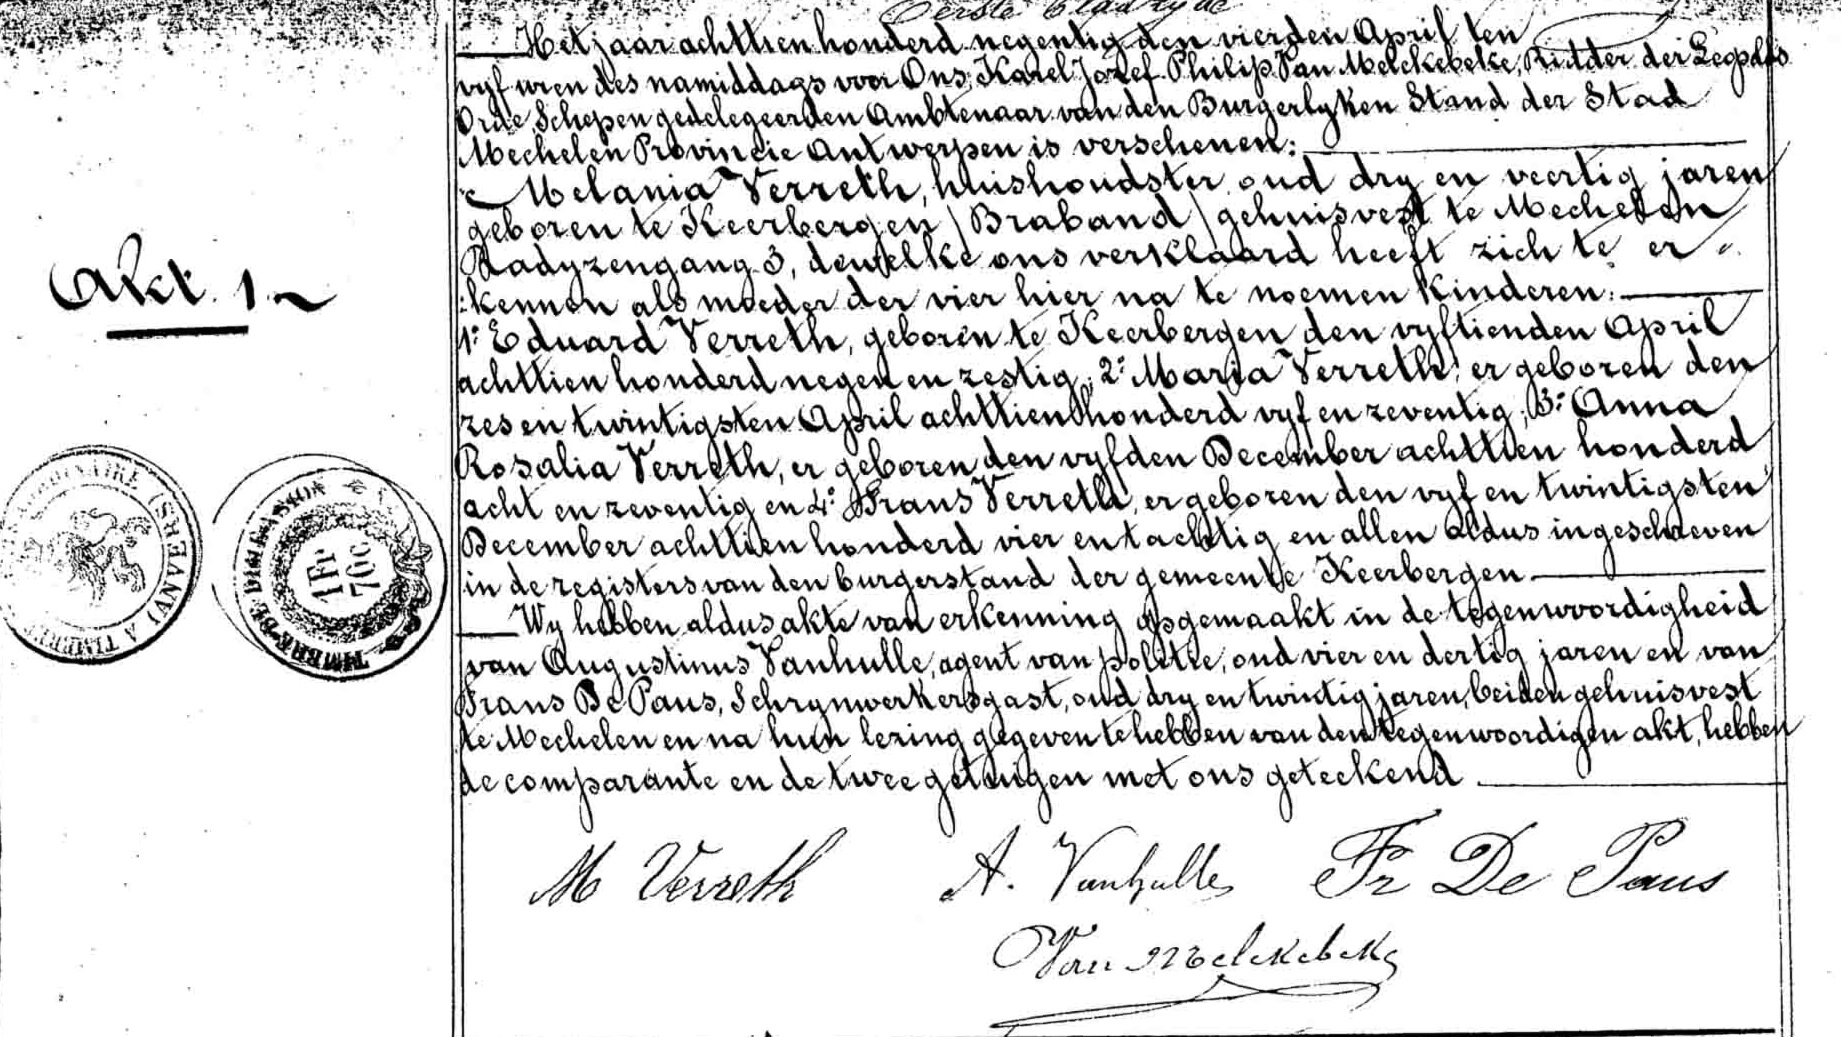 Eerste bladzyde
Het jaar achttien honderd negentig den vierden April ten
vyf uren des namiddags voor Ons, Karel Jozef Philip Van Melckebeke, Ridder der Leopolds
Orde, Schepen gedelegeerden Ambtenaar van den Burgerlyken Stand der Stad
Mechelen Provincie Antwerpen is verschenen:
Melania Verreth, huishoudster oud dry en veertig jaren
geboren te Keerbergen (Braband) gehuisvest te Mechelen
Radyzengang 3, dewelke ons verklaard heeft zich te er
:kennen als moeder der vier hier na te noemen kinderen:
1° Eduard Verreth, geboren te Keerbergen den vyftienden April
achttien honderd negen en zestig; 2° Maria Verreth, er geboren den
zes en twintigsten April achttien honderd vyf en zeventig; 3° Anna
Rosalia Verreth, er geboren den vyfden December achttien honderd
acht en zeventig en 4° Frans Verreth, er geboren den vyf en twintigsten
December achttien honderd vier en tachtig en allen aldus ingeschreven
in de registers van den burgerstand der gemeente Keerbergen
Wy hebben aldus akte van erkenning opgemaakt in de tegenwoordigheid
van Augustinus Vanhulle, agent van politie, oud vier en dertig jaren en van
Frans De Paus, Schrynwerkersgast, oud dry en twintig jaren, beiden gehuisvest
te Mechelen en na hun lezing gegeven te hebben van den tegenwoordigen akt, hebben
de comparante en de twee getuigen met ons geteekend
Akt. 1
TIMBRE DE DIMENSION
1 FR
70 C
M Verreth A. Vanhulle Fr De Paus
Van Melckebeke